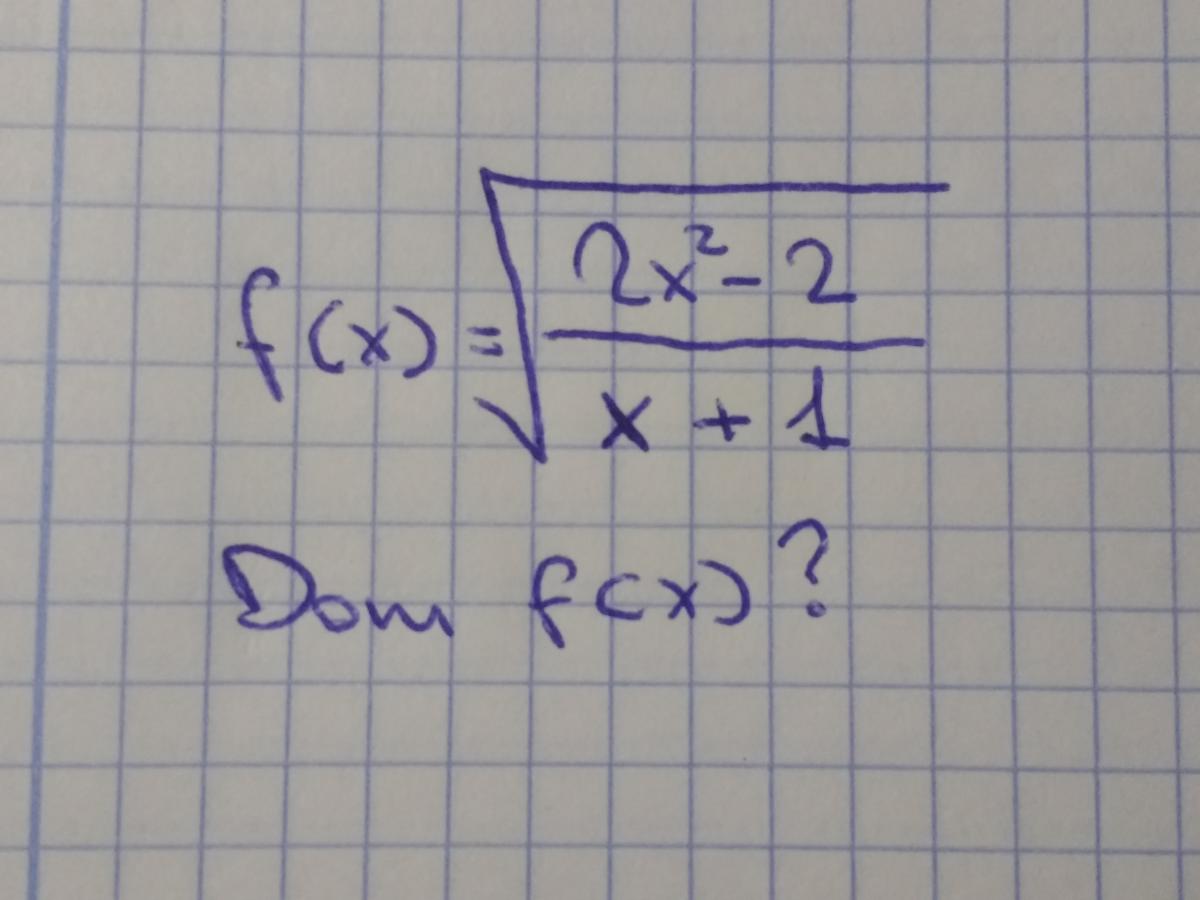 f(x) = √((2x² - 2)/(x + 1))
Dom f(x)?